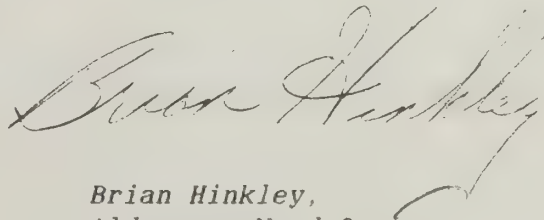 Brian Hinkley
Brian Hinkley,